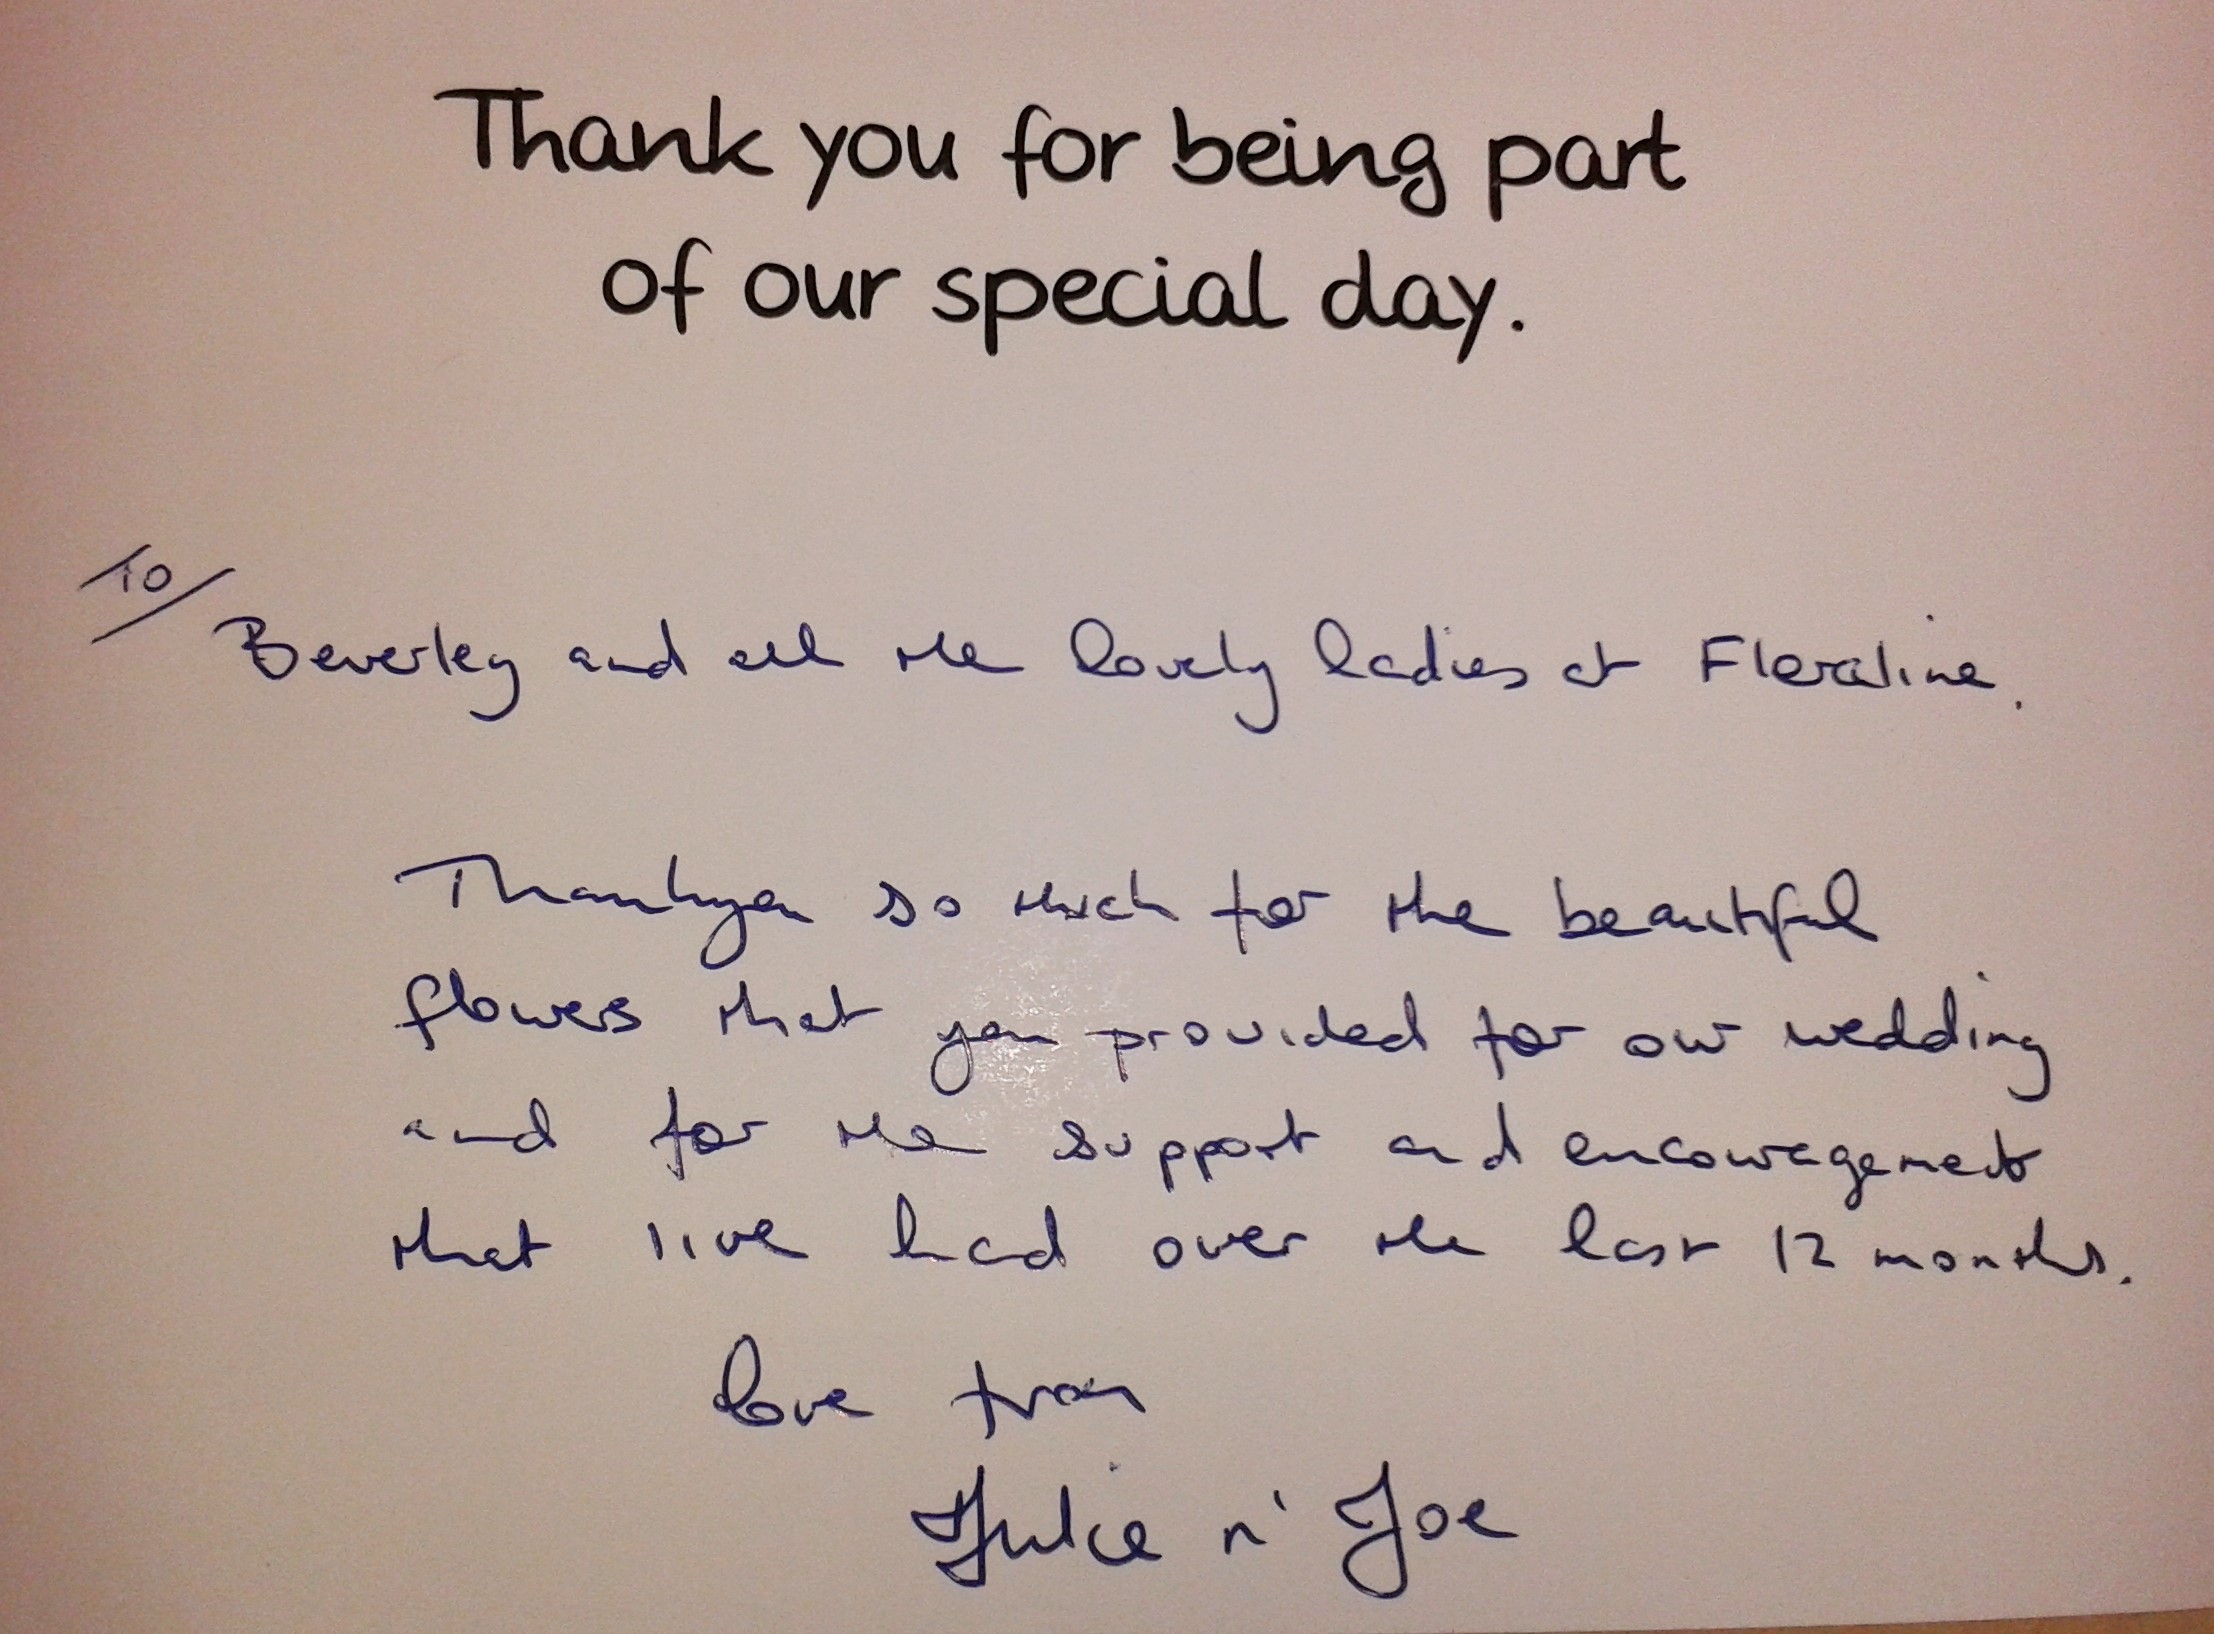 Thank you for being part
of our special day.
To/
Beverley and all the lovely ladies at Floraline.
Thankyou so much for the beautiful
flowers that you provided for our wedding
and for the support and encouragement
that I've had over the last 12 months.
love from
Julie n' Joe